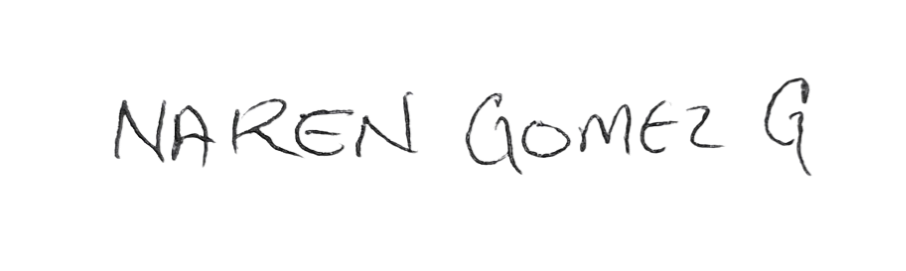 NAREN GOMEZ G